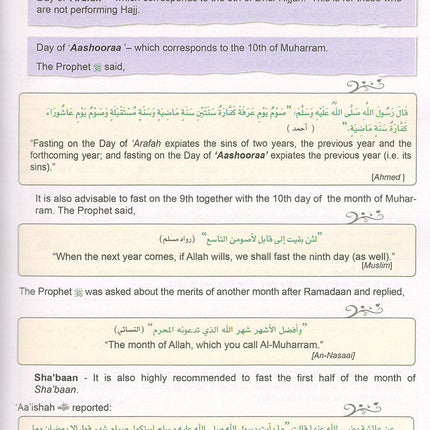 are not performing Hajj.
Day of 'Aashooraa '– which corresponds to the 10th of Muharram.
The Prophet ﷺ said,
قَالَ رَسُولُ اللَّهِ صَلَّى اللَّهُ عَلَيْهِ وَسَلَّمَ: "صَوْمُ يَوْمِ عَرَفَةَ كَفَّارَةُ سَنَتَيْنِ سَنَةٍ مَاضِيَةٍ وَسَنَةٍ مُسْتَقْبَلَةٍ وَصَوْمُ يَوْمِ عَاشُورَاءَ
كَفَّارَةُ سَنَةٍ مَاضِيَةٍ." ( أحمد )
"Fasting on the Day of 'Arafah expiates the sins of two years, the previous year and the
forthcoming year; and fasting on the Day of 'Aashooraa' expiates the previous year (i.e. its
sins)."
[Ahmed ]
It is also advisable to fast on the 9th together with the 10th day of the month of Muhar-
ram. The Prophet said,
"لئن بقيت إلى قابل لأصومن التاسع" (رواه مسلم)
"When the next year comes, if Allah wills, we shall fast the ninth day (as well)."
[Muslim]
The Prophet ﷺ was asked about the merits of another month after Ramadaan and replied,
"وأفضل الأشهر شهر الله الذي تدعونه المحرم" (النسائي)
"The month of Allah, which you call Al-Muharram."
[An-Nasaai]
Sha'baan - It is also highly recommended to fast the first half of the month of
Sha'baan.
'Aa'ishah reported: